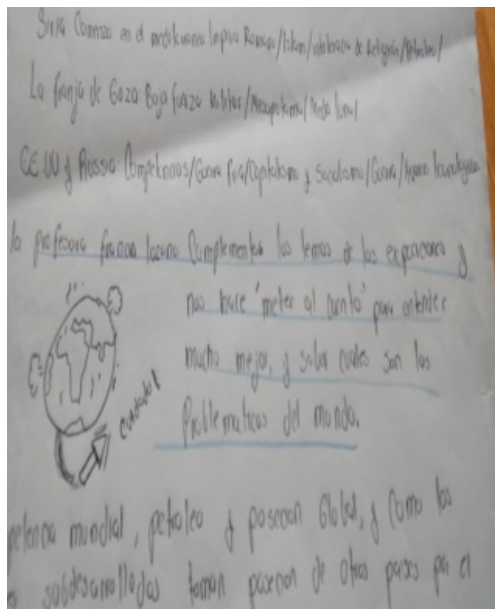 Siria Comenzo en el mediterraneo Imperio Romano/Islam/intolerancia de Religion/Petroleo/
La franja de Gaza Bajo fuerza Militar/Mesopotamia/Media luna/
EE.UU y Russia Competencias/Guerra Fria/Capitalismo y Socialismo/Guerra/Avance tecnologico
la profesora franca lozano Complementa los temas de las expociones y
nos hace "meter al cuento" para entender
mucho mejor, y saber cuales son las
Problematicas del mundo.
cuidado!
petencia mundial, petroleo y posecion Global, y como los
subdesarrollados toman posecion de otros paises por el